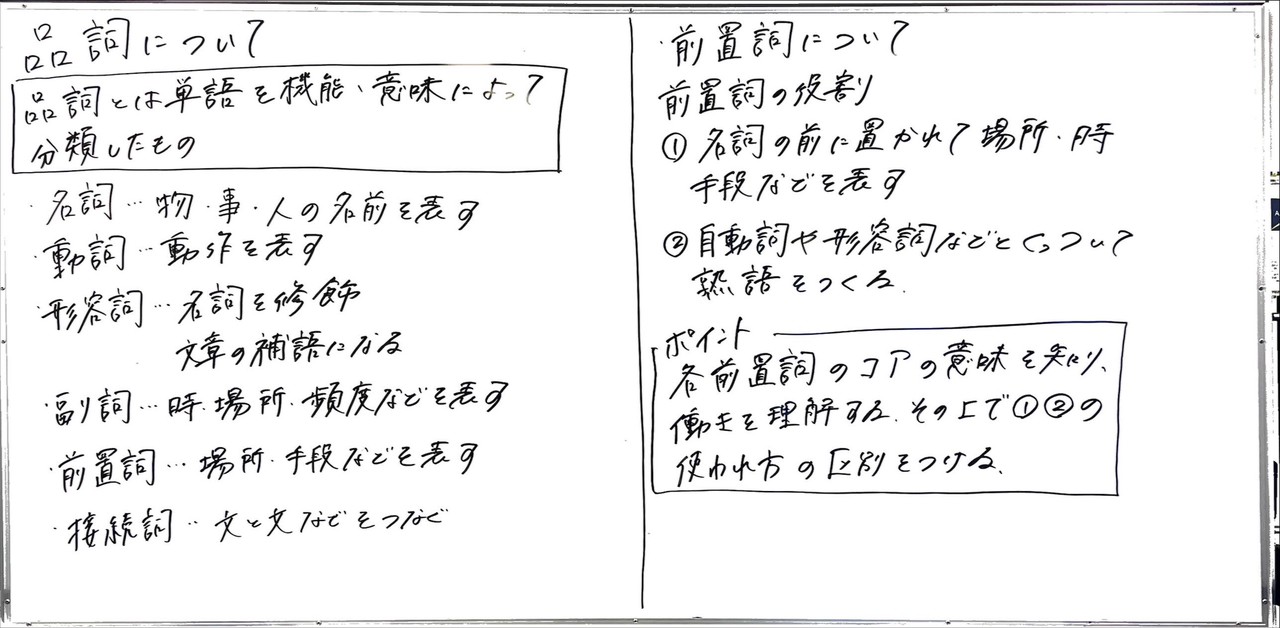 品詞について
品詞とは単語を機能、意味によって
分類したもの
・名詞…物・事・人の名前を表す
・動詞…動作を表す
・形容詞…名詞を修飾
文章の補語になる
・副詞…時・場所・頻度などを表す
・前置詞…場所・手段などを表す
・接続詞…文と文などをつなぐ
・前置詞について
前置詞の役割
① 名詞の前に置かれて場所・時
手段などを表す
② 自動詞や形容詞などとくっついて
熟語をつくる.
ポイント
各前置詞のコアの意味を知り、
働きを理解する.その上で①②の
使われ方の区別をつける.